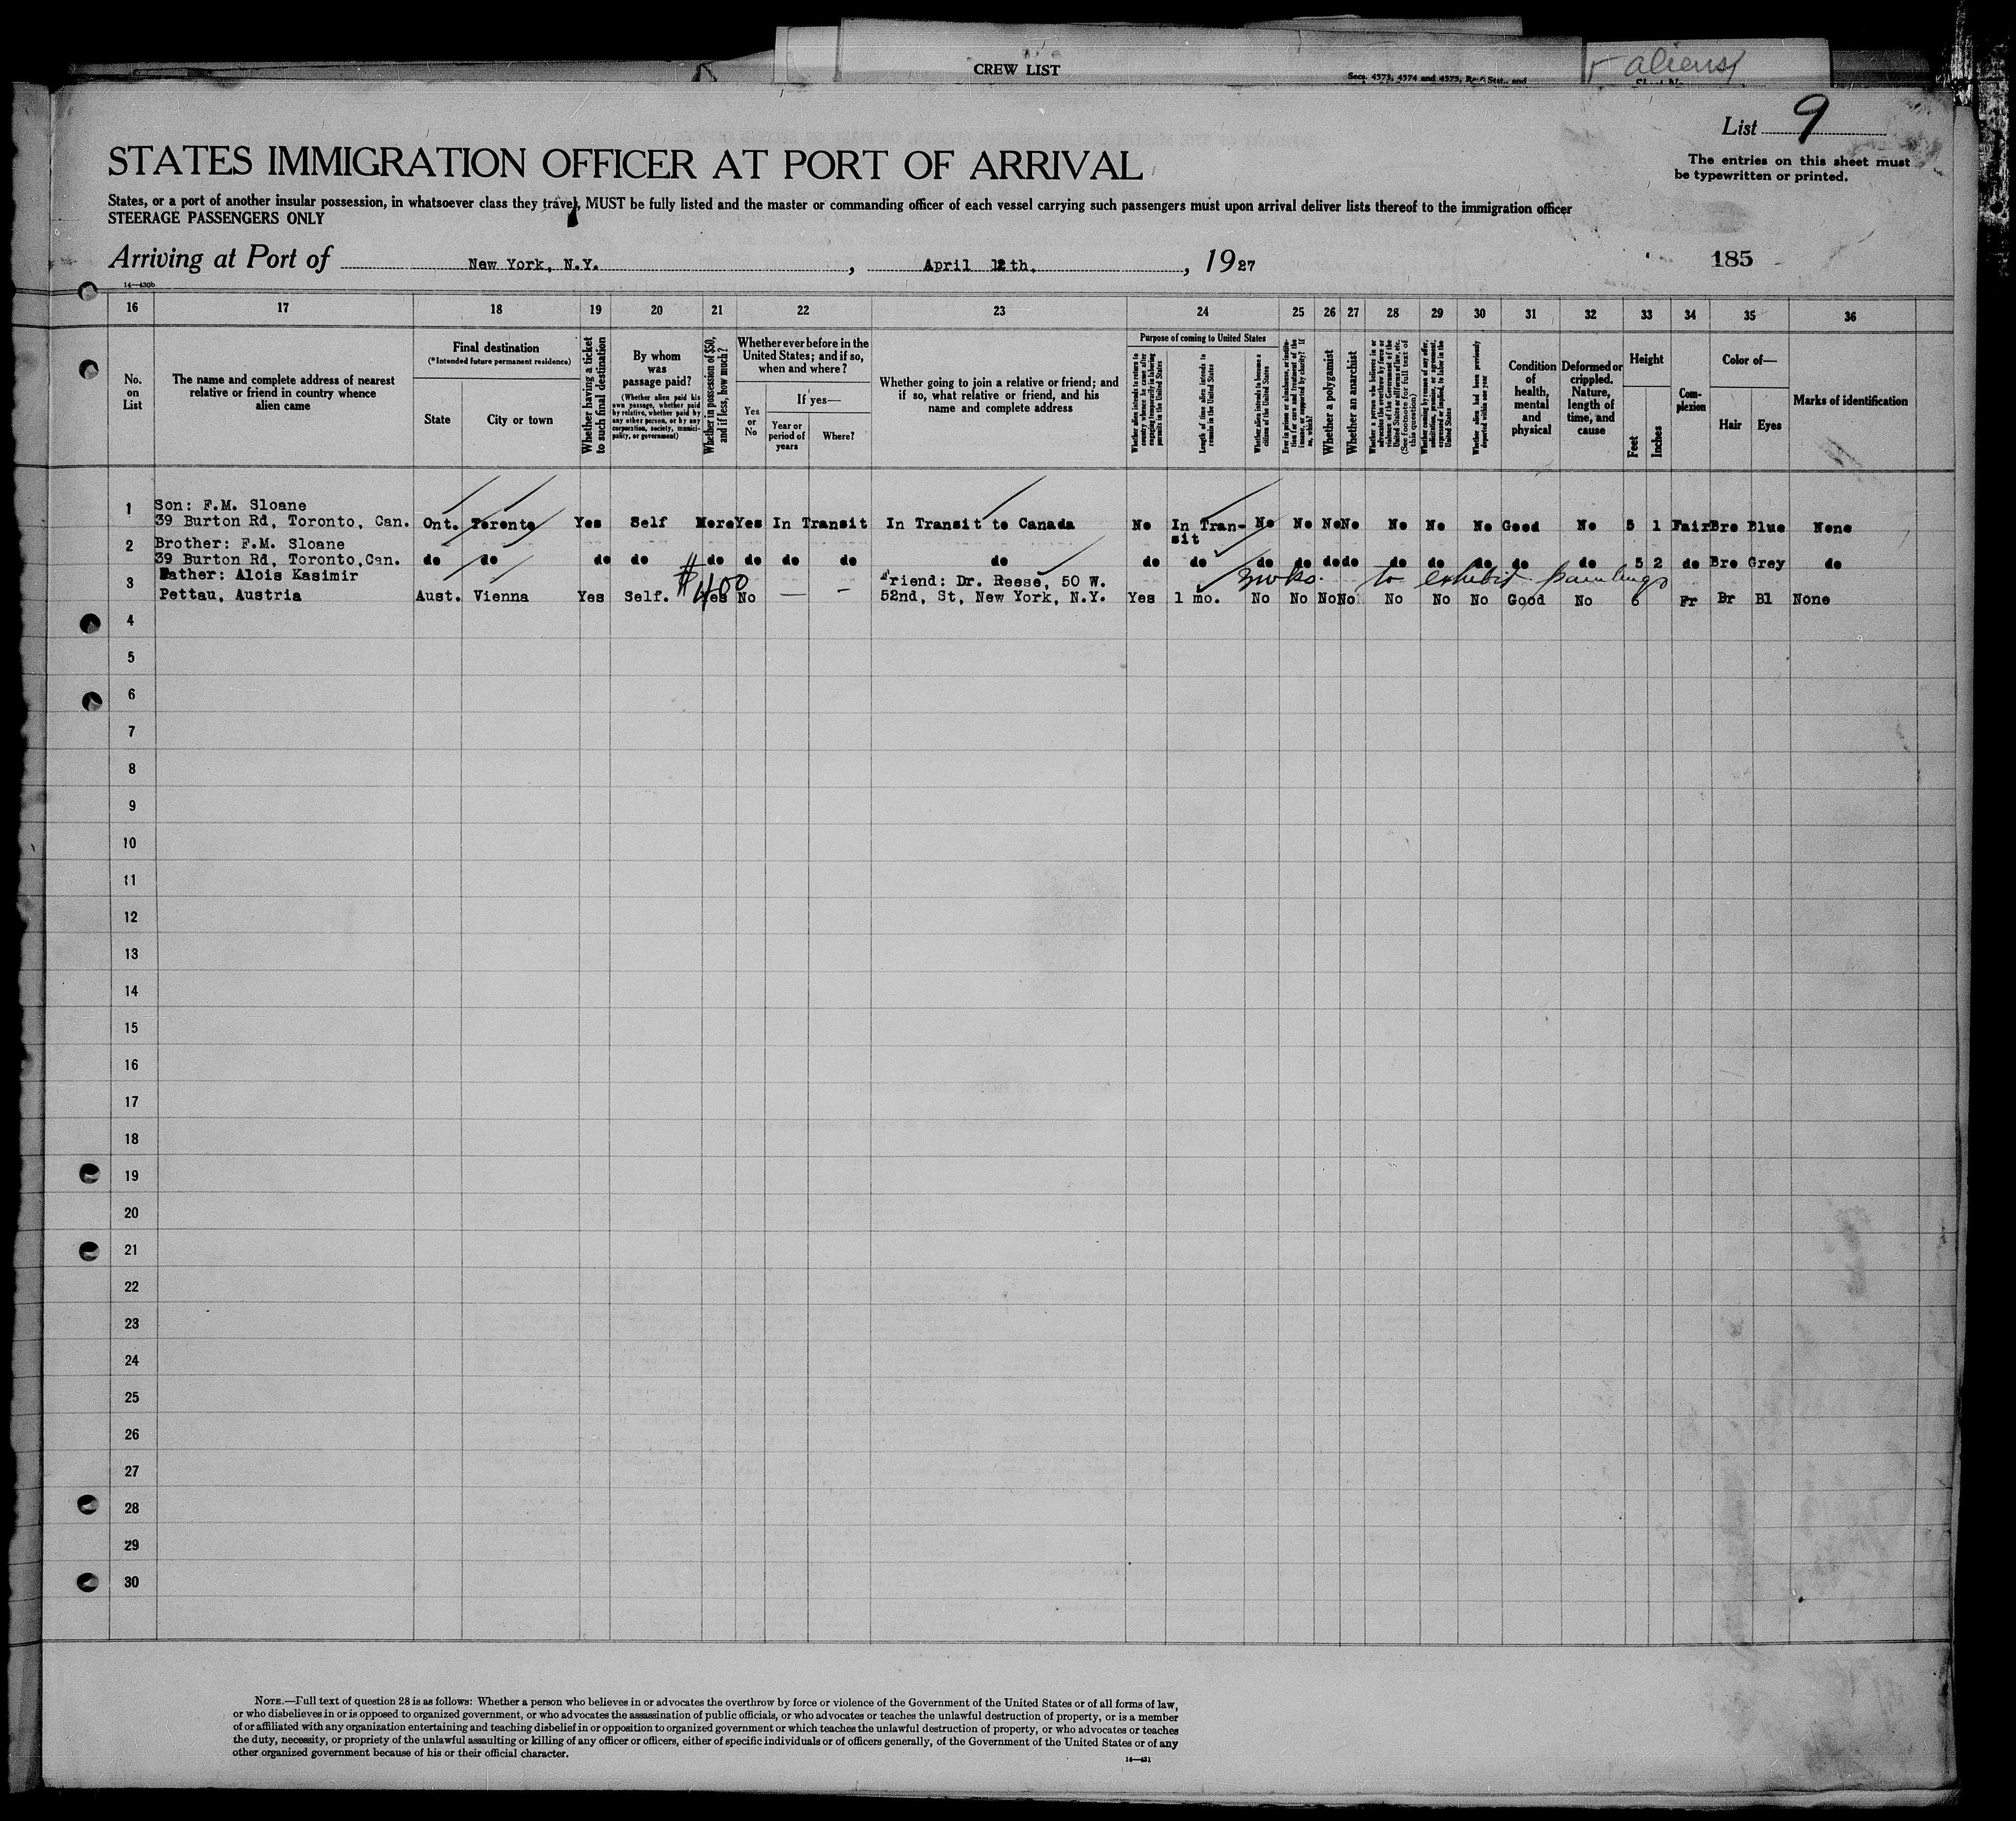 CREW LIST
Secs. 4573, 4574 and 4575, Rev. Stat., and
aliens
List 9
The entries on this sheet must
be typewritten or printed.
STATES IMMIGRATION OFFICER AT PORT OF ARRIVAL
States, or a port of another insular possession, in whatsoever class they travel, MUST be fully listed and the master or commanding officer of each vessel carrying such passengers must upon arrival deliver lists thereof to the immigration officer
STEERAGE PASSENGERS ONLY
Arriving at Port of New York, N.Y. , April 12th, , 1927
185
14—430b
16 17 18 19 20 21 22 23 24 25 26 27 28 29 30 31 32 33 34 35 36
No. on List
The name and complete address of nearest relative or friend in country whence alien came
Final destination
(*Intended future permanent residence)
State
City or town
Whether having a ticket to such final destination
By whom was passage paid?
(Whether alien paid his own passage, whether paid by relative, whether paid by any other person, or by any corporation, society, municipality, or government)
Whether in possession of $50, and if less, how much?
Whether ever before in the United States; and if so, when and where?
Yes or No
If yes—
Year or period of years
Where?
Whether going to join a relative or friend; and if so, what relative or friend, and his name and complete address
Purpose of coming to United States
Whether alien intends to return to country whence he came after engaging temporarily in laboring pursuits in the United States
Length of time alien intends to remain in the United States
Whether alien intends to become a citizen of the United States
Ever in prison or almshouse, or institution for care and treatment of the insane, or supported by charity? If so, which?
Whether a polygamist
Whether an anarchist
Whether a person who believes in or advocates the overthrow by force or violence of the Government of the United States or all forms of law, etc. (See footnote for full text of this question)
Whether coming by reason of any offer, solicitation, promise, or agreement, expressed or implied, to labor in the United States
Whether alien had been previously deported within one year
Condition of health, mental and physical
Deformed or crippled. Nature, length of time, and cause
Height
Feet
Inches
Complexion
Color of—
Hair
Eyes
Marks of identification
1 Son: F.M. Sloane
39 Burton Rd, Toronto, Can. Ont. Toronto Yes Self More Yes In Transit In Transit to Canada No In Transit No No No No No No No Good No 5 1 Fair Bro Blue None
2 Brother: F.M. Sloane
39 Burton Rd, Toronto,Can. do do do do do do do do do do do do do do do do do do do do do 5 2 do Bro Grey do
3 Father: Alois Kasimir $400 Friend: Dr. Reese, 50 W. 3 wks. to exhibit paintings
Pettau, Austria Aust. Vienna Yes Self. Yes No — - 52nd, St, New York, N.Y. Yes 1 mo. No No No No No No No Good No 6 Fr Br Bl None
4
5
6
7
8
9
10
11
12
13
14
15
16
17
18
19
20
21
22
23
24
25
26
27
28
29
30
NOTE.—Full text of question 28 is as follows: Whether a person who believes in or advocates the overthrow by force or violence of the Government of the United States or of all forms of law,
or who disbelieves in or is opposed to organized government, or who advocates the assassination of public officials, or who advocates or teaches the unlawful destruction of property, or is a member
of or affiliated with any organization entertaining and teaching disbelief in or opposition to organized government or which teaches the unlawful destruction of property, or who advocates or teaches
the duty, necessity, or propriety of the unlawful assaulting or killing of any officer or officers, either of specific individuals or of officers generally, of the Government of the United States or of any
other organized government because of his or their official character.
14—431